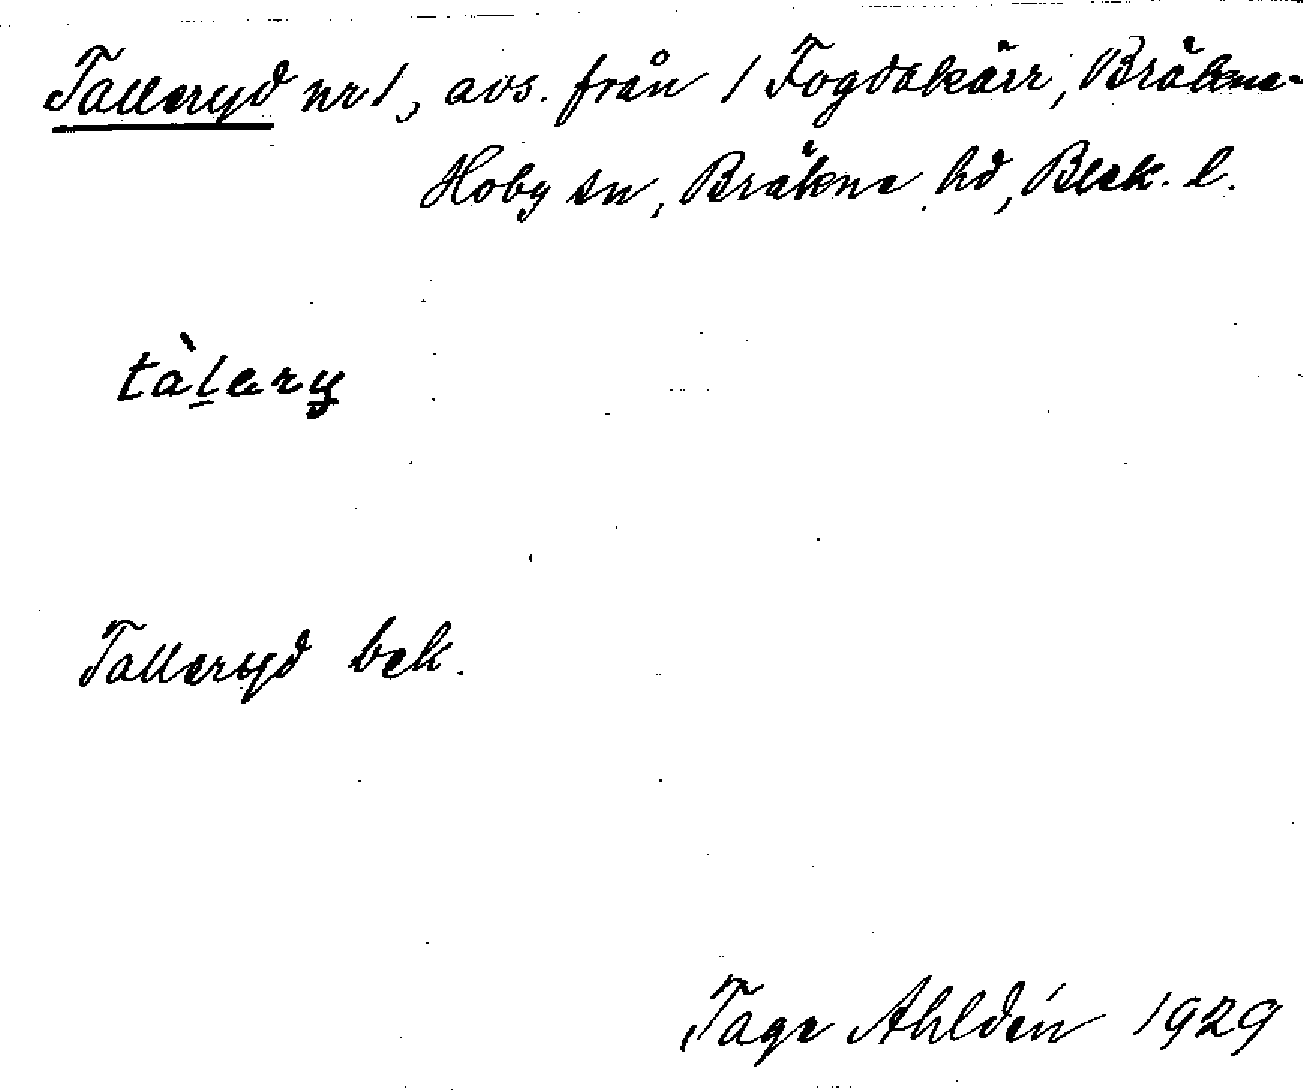 Talleryd nr 1, avs. från 1 Fogdakärr, Bräkne-
Hoby sn, Bräkne hd, Blek. l.
tàl̲ery̲
Talleryd bek.
Tage Ahldén 1929